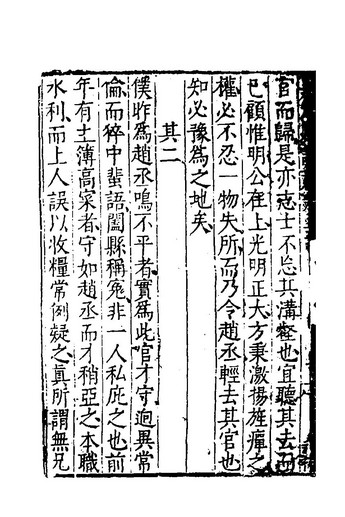 官而歸是亦志士不忘其溝壑也宜聽其去而
已顧惟明公在上光明正大方秉激揚旌癉之
權必不忍一物失所而乃令趙丞輕去其官也
知必豫爲之地矣
其二
僕昨爲趙丞鳴不平者實爲此官才守逈異常
倫而猝中蜚語闔縣稱寃非一人私庇之也前
年有主簿高寀者守如趙丞而才稍亞之本職
水利而上人誤以收糧常例疑之眞所謂無兄